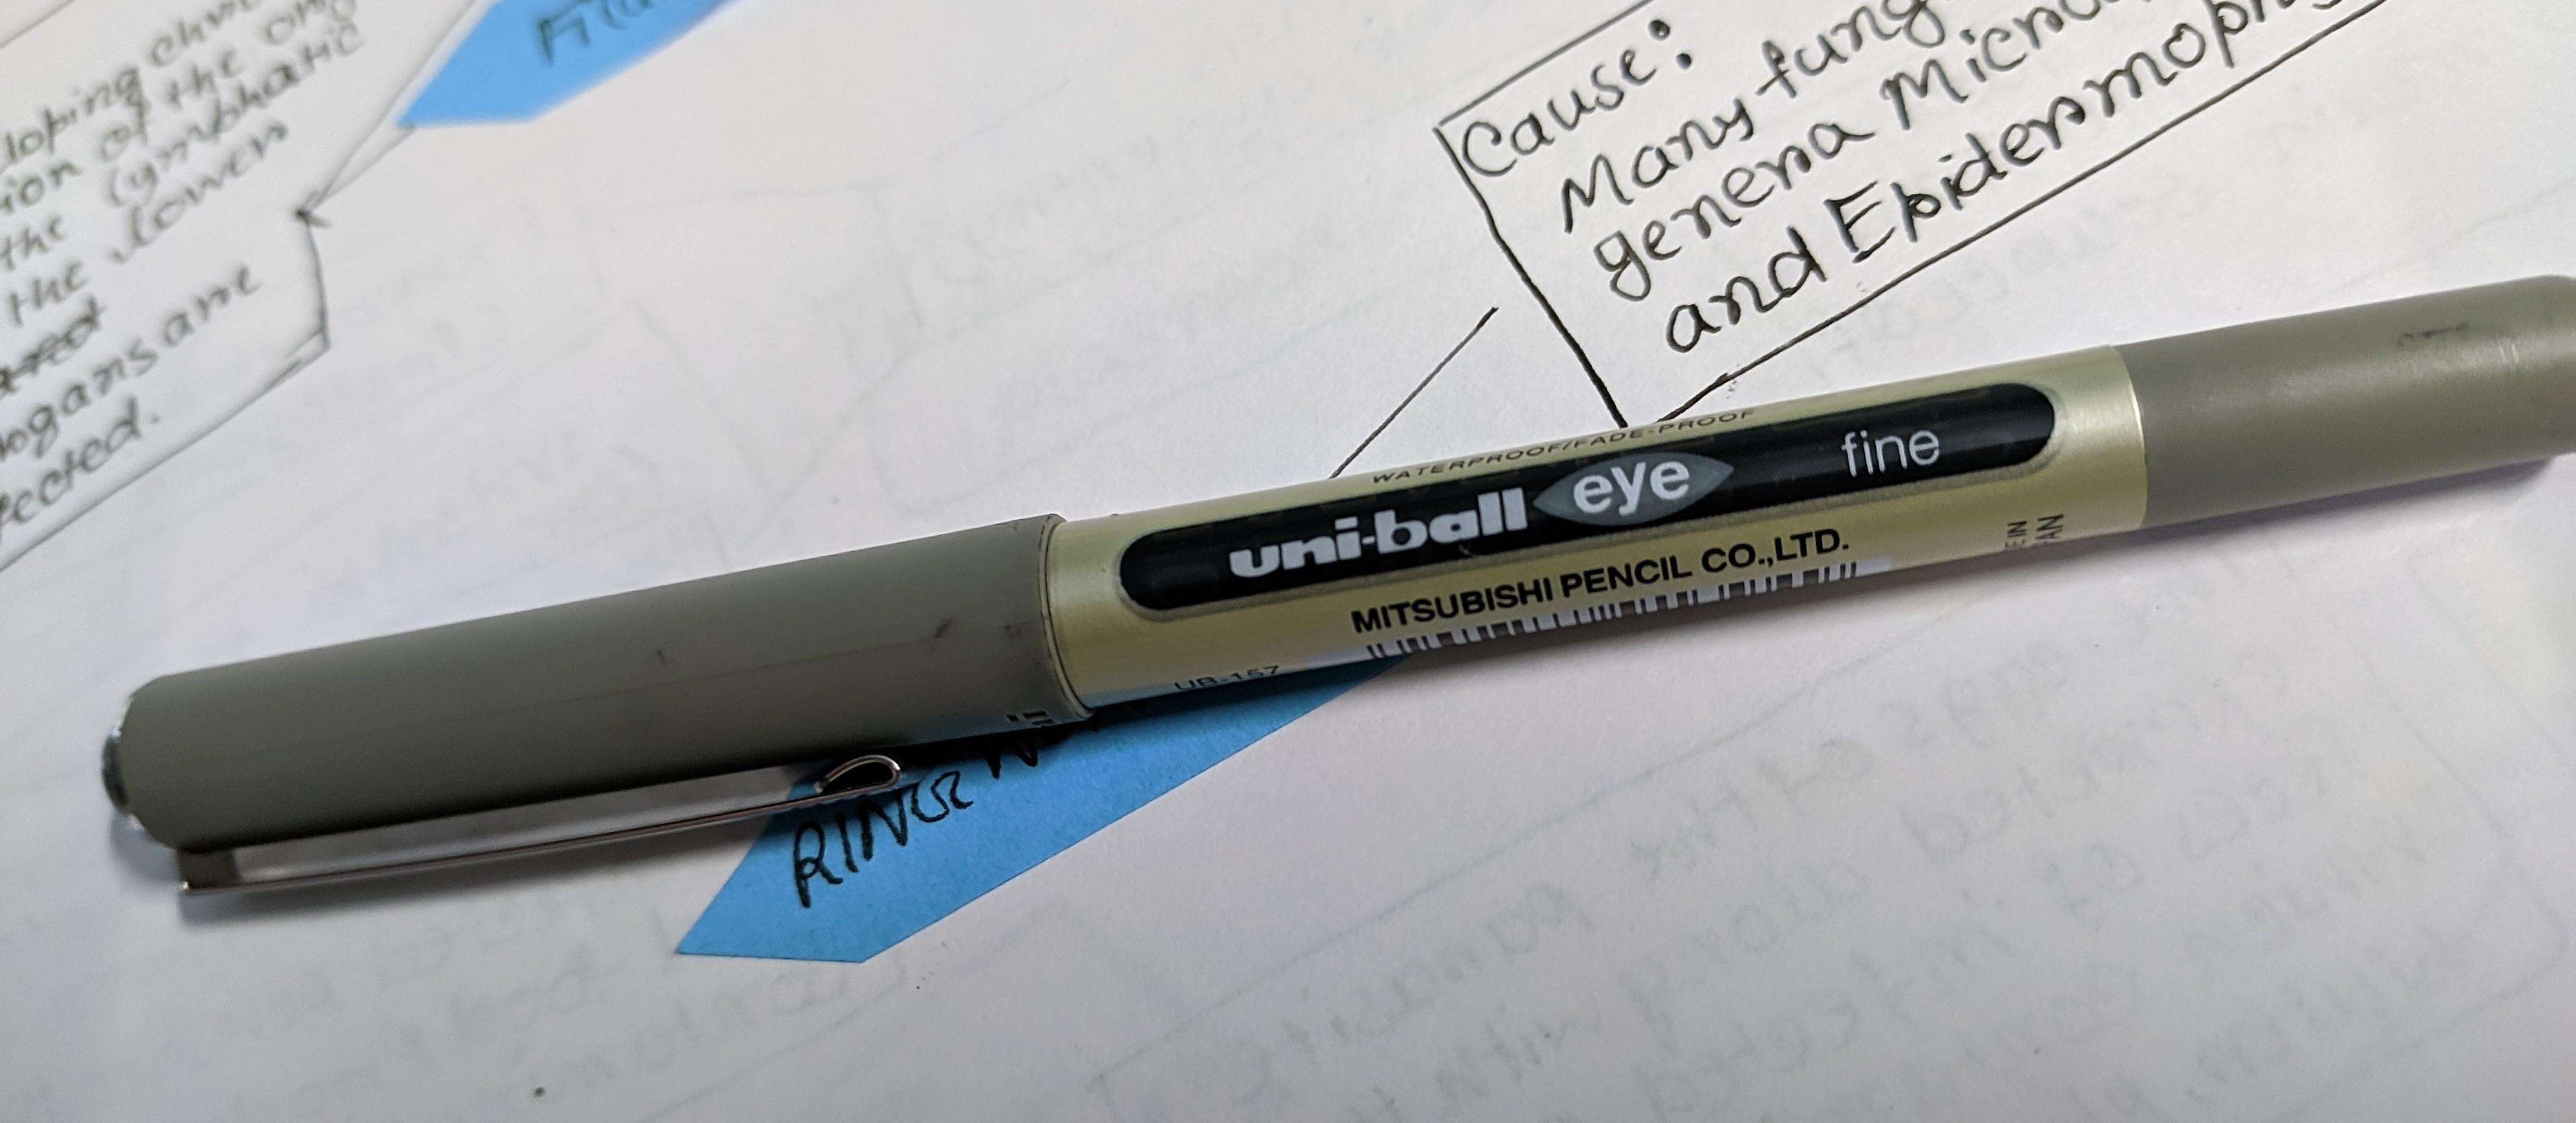 loping
of the
the lymphatic
the lower
ogans are
fected.
Cause:
Many fung
genera Micro
and Epidermoph
WATERPROOF/FADE-PROOF
uni-ball eye fine
MITSUBISHI PENCIL CO.,LTD.
UB-157
RING W